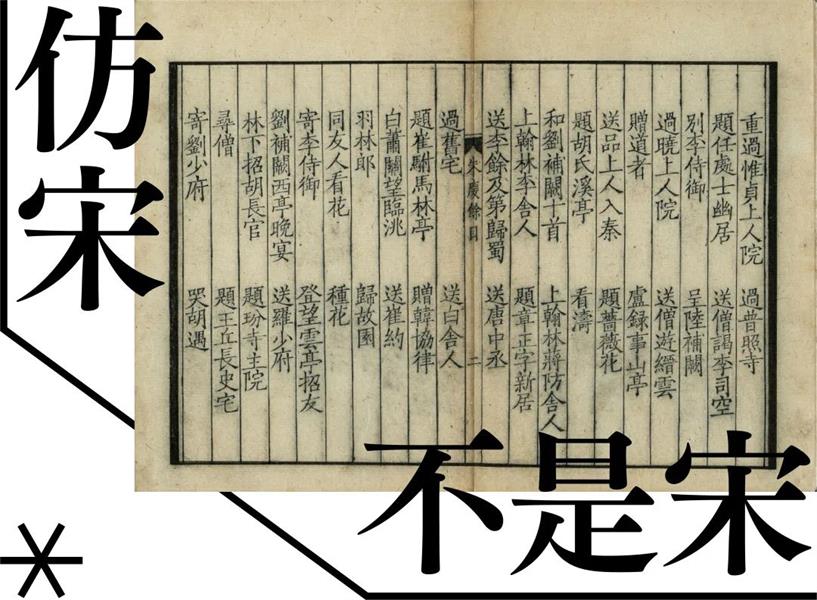 仿宋
不是宋
重過惟貞上人院 過普照寺
題任處士幽居 送僧謁李司空
別李侍御 呈陸補闕
過曉上人院 送僧遊縉雲
贈道者 盧錄事山亭
送品上人入秦 題薔薇花
題胡氏溪亭 看濤
和劉補闕十首 上翰林蔣防舍人
上翰林李舍人 題章正字新居
送李餘及第歸蜀 送唐中丞
朱慶餘目 二
過舊宅 送白舍人
題崔駙馬林亭 贈韓協律
白蕭關望臨洮 送崔約
羽林郎 歸故園
同友人看花 種花
寄李侍御 登望雲亭招友
劉補闕西亭晚宴 送羅少府
林下招胡長官 題玢寺主院
尋僧 題王丘長史宅
寄劉少府 哭胡遇